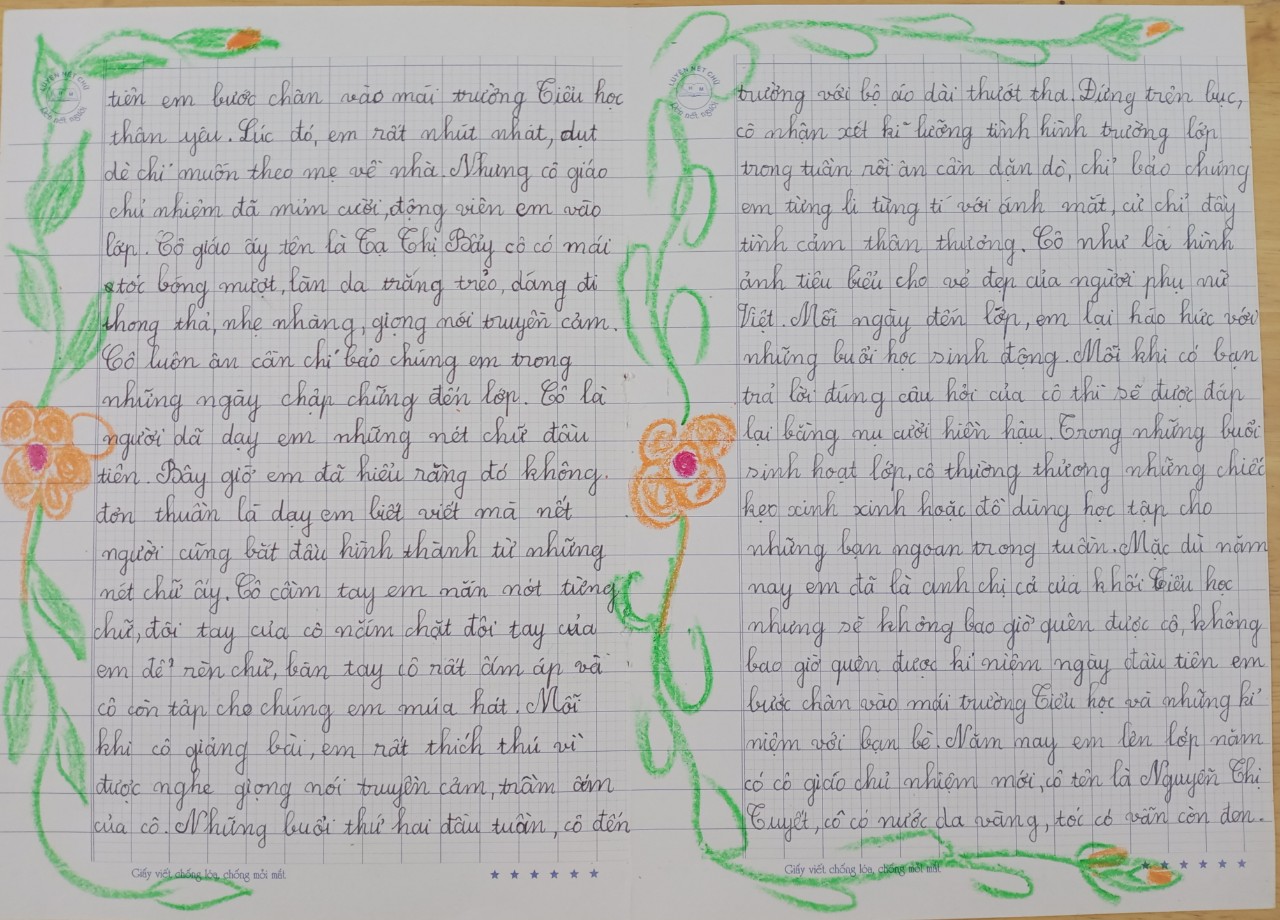 LUYỆN NÉT CHỮ
RÈN NẾT NGƯỜI
tiên em bước chân vào mái trường Tiểu học
thân yêu. Lúc đó, em rất nhút nhát, dụt
dè chỉ muốn theo mẹ về nhà. Nhưng cô giáo
chủ nhiệm đã mỉm cười, động viên em vào
lớp. Cô giáo ấy tên là Tạ Thị Bẩy cô có mái
tóc bóng mượt, làn da trắng trẻo, dáng đi
thong thả, nhẹ nhàng, giọng nói truyền cảm.
Cô luôn ân cần chỉ bảo chúng em trong
những ngày chập chững đến lớp. Cô là
người đã dạy em những nét chữ đầu
tiên. Bây giờ em đã hiểu rằng đó không
đơn thuần là dạy em biết viết mà nết
người cũng bắt đầu hình thành từ những
nét chữ ấy. Cô cầm tay em nắn nót từng
chữ, đôi tay của cô nắm chặt đôi tay của
em để rèn chữ, bàn tay cô rất ấm áp và
cô còn tập cho chúng em múa hát. Mỗi
khi cô giảng bài, em rất thích thú vì
được nghe giọng nói truyền cảm, trầm ấm
của cô. Những buổi thứ hai đầu tuần, cô đến
Giấy viết chống lóa, chống mỏi mắt
LUYỆN NÉT CHỮ
RÈN NẾT NGƯỜI
trường với bộ áo dài thướt tha. Đứng trên bục,
cô nhận xét kĩ lưỡng tình hình trường lớp
trong tuần rồi ân cần dặn dò, chỉ bảo chúng
em từng li từng tí với ánh mắt, cử chỉ đầy
tình cảm thân thương. Cô như là hình
ảnh tiêu biểu cho vẻ đẹp của người phụ nữ
Việt. Mỗi ngày đến lớp, em lại háo hức với
những buổi học sinh động. Mỗi khi có bạn
trả lời đúng câu hỏi của cô thì sẽ được đáp
lại bằng nụ cười hiền hậu. Trong những buổi
sinh hoạt lớp, cô thường thưởng những chiếc
kẹo xinh xinh hoặc đồ dùng học tập cho
những bạn ngoan trong tuần. Mặc dù năm
nay em đã là anh chị cả của khối Tiểu học
nhưng sẽ không bao giờ quên được cô, không
bao giờ quên được kỉ niệm ngày đầu tiên em
bước chân vào mái trường Tiểu học và những kỉ
niệm với bạn bè. Năm nay em lên lớp năm
có cô giáo chủ nhiệm mới, cô tên là Nguyễn Thị
Tuyết, cô có nước da vàng, tóc cô vẫn còn đen.
Giấy viết chống lóa, chống mỏi mắt